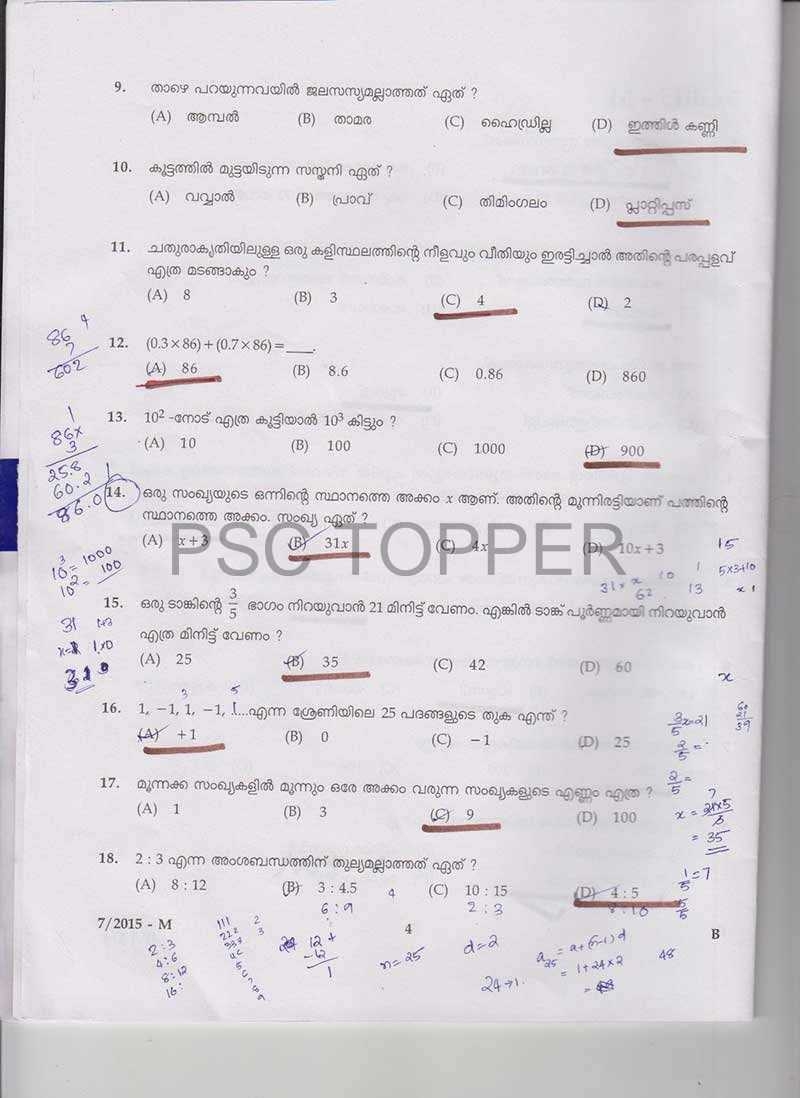 9. താഴെ പറയുന്നവയിൽ ജലസസ്യമല്ലാത്തത് ഏത് ?
(A) ആമ്പൽ (B) താമര (C) ഹൈഡ്രില്ല (D) ഇത്തിൾ കണ്ണി
10. കൂട്ടത്തിൽ മുട്ടയിടുന്ന സസ്തനി ഏത് ?
(A) വവ്വാൽ (B) പ്രാവ് (C) തിമിംഗലം (D) പ്ലാറ്റിപ്പസ്
11. ചതുരാകൃതിയിലുള്ള ഒരു കളിസ്ഥലത്തിന്റെ നീളവും വീതിയും ഇരട്ടിച്ചാൽ അതിന്റെ പരപ്പളവ്
എത്ര മടങ്ങാകും ?
(A) 8 (B) 3 (C) 4 (D) 2
86 4
7
602
12. (0.3 × 86) + (0.7 × 86) = ____.
(A) 86 (B) 8.6 (C) 0.86 (D) 860
1
86 ×
3
25.8
60.2
86.0
13. 10² -നോട് എത്ര കൂട്ടിയാൽ 10³ കിട്ടും ?
(A) 10 (B) 100 (C) 1000 (D) 900
14. ഒരു സംഖ്യയുടെ ഒന്നിന്റെ സ്ഥാനത്തെ അക്കം x ആണ്. അതിന്റെ മൂന്നിരട്ടിയാണ് പത്തിന്റെ
സ്ഥാനത്തെ അക്കം. സംഖ്യ ഏത് ?
(A) x + 3 (B) 31x (C) 4x (D) 10x + 3
PSC TOPPER
15
10³ = 1000
10² = 100
31 × x 10 1 5×3+10
62 13 x 1
15. ഒരു ടാങ്കിന്റെ 3/5 ഭാഗം നിറയുവാൻ 21 മിനിട്ട് വേണം. എങ്കിൽ ടാങ്ക് പൂർണ്ണമായി നിറയുവാൻ
എത്ര മിനിട്ട് വേണം ?
(A) 25 (B) 35 (C) 42 (D) 60
31
x
3 5
16. 1, −1, 1, −1, 1....എന്ന ശ്രേണിയിലെ 25 പദങ്ങളുടെ തുക എന്ത് ?
(A) +1 (B) 0 (C) −1 (D) 25
3/5 x = 21
60
21
39
2/5 =
2/5 =
17. മൂന്നക്ക സംഖ്യകളിൽ മൂന്നും ഒരേ അക്കം വരുന്ന സംഖ്യകളുടെ എണ്ണം എത്ര ?
(A) 1 (B) 3 (C) 9 (D) 100
7
x = 21×5/3
= 35
18. 2 : 3 എന്ന അംശബന്ധത്തിന് തുല്യമല്ലാത്തത് ഏത് ?
(A) 8 : 12 (B) 3 : 4.5 4 (C) 10 : 15 (D) 4 : 5
1/5 = 7
5/5
6 : 9 2 : 3 8 : 10
7/2015 - M 4 B
2 : 3
4 : 6
8 : 12
16 :
111 2
222 3
333
12 +
−12
1
n = 25 d = 2
24 → 1.
a₂₅ = a + (n−1) d 48
= 1 + 24 × 2